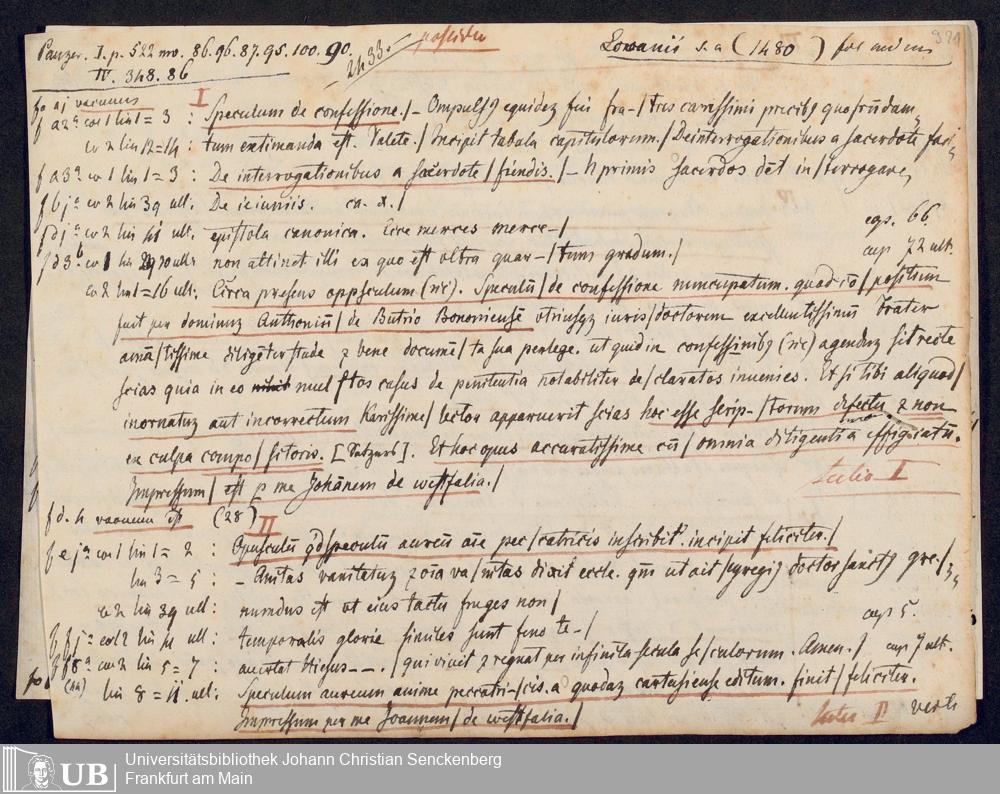 Panzer. I. p. 522 no. 86. 96. 87. 95. 100. 90. 2433. possidet Lowanii s. a (1480)
IV. 348. 86
fo aj vacuum I
f a2ª col 1 lin 1 = 3 : Speculum de confessione./ – Ompulsꝰ equidez fui fra-/tres carissimi precibꝰ quorũdam,
co 2 lin 12 = 14 : tum extimanda est. Valete./ Incipit tabula capitulorum./ De interrogationibus a sacerdote
f a3ª co 1 lin 1 = 3 : De interrogationibus a sacerdote / fiendis./ – N primis sacerdos dēt in/terrogare,
f bjª co 2 lin 39 ult. De ieiuniis. ca. x./
f djª co 2 lin 41 ult. epistola canonica. Ecce merces merce-/ cap. 66.
f d3ᵇ co 1 lin non attinet illi ex quo est vltra quar-/tum gradum./ cap 72 ult.
co 2 lin 1 = 16 ult. Circa presens oppsculum (sic). Speculũ/ de confessione nuncupatum. quod / positum
fuit per dominuz Anthoniũ/ de Butrio Bononiensẽ vtriusqz iuris/doctorem excellentissimũ frater
amã/tissime diligẽter stude z bene documẽ/ta sua perlege. ut quid in confessinibꝰ (sic) agenduz sit recte
scias quia in eo mul/tos casus de penitentia notabiliter de/claratos inuenies. Et si tibi aliquod/
inornatuz aut incorrectum Karissime/ lector apparuerit scias hoc esse scrip-/torum defectu z non
ex culpa compo/sitoris. Et hoc opus accuratissime cũ/ omnia diligentia effigiatũ.
Impressum/ est p me Johãnem de westfalia./
f d. 4 vacuum est (28) II
f ejª col 1 lin 1 = 2 : Opusculũ qd speculũ aureũ aĩe pec/catricis inscribit. incipit feliciter./
lin 3 = 5 : – Anitas vanitatuz z oĩa va/nitas dixit eccle. qm ut ait /egregiꝰ doctor sanctꝰ gre/
co 2 lin 39 ult : mundus est vt eius tactu fruges non/ cap 5.
f fjª col 2 lin 41 ult : temporalis glorie similes sunt feno te-/
f f8ª co 2 lin 5 = 7 : – – . / qui viuit z regnat per infinita secula se/culorum. Amen./ cap 7 ult.
lin 8 = 11. ult : Speculum aureum anime peccatri-/cis. a quodaz cartusiense editum. finit/feliciter.
Impressum per me Joannem/ de westfalia./ II verte
UB Universitätsbibliothek Johann Christian Senckenberg
Frankfurt am Main